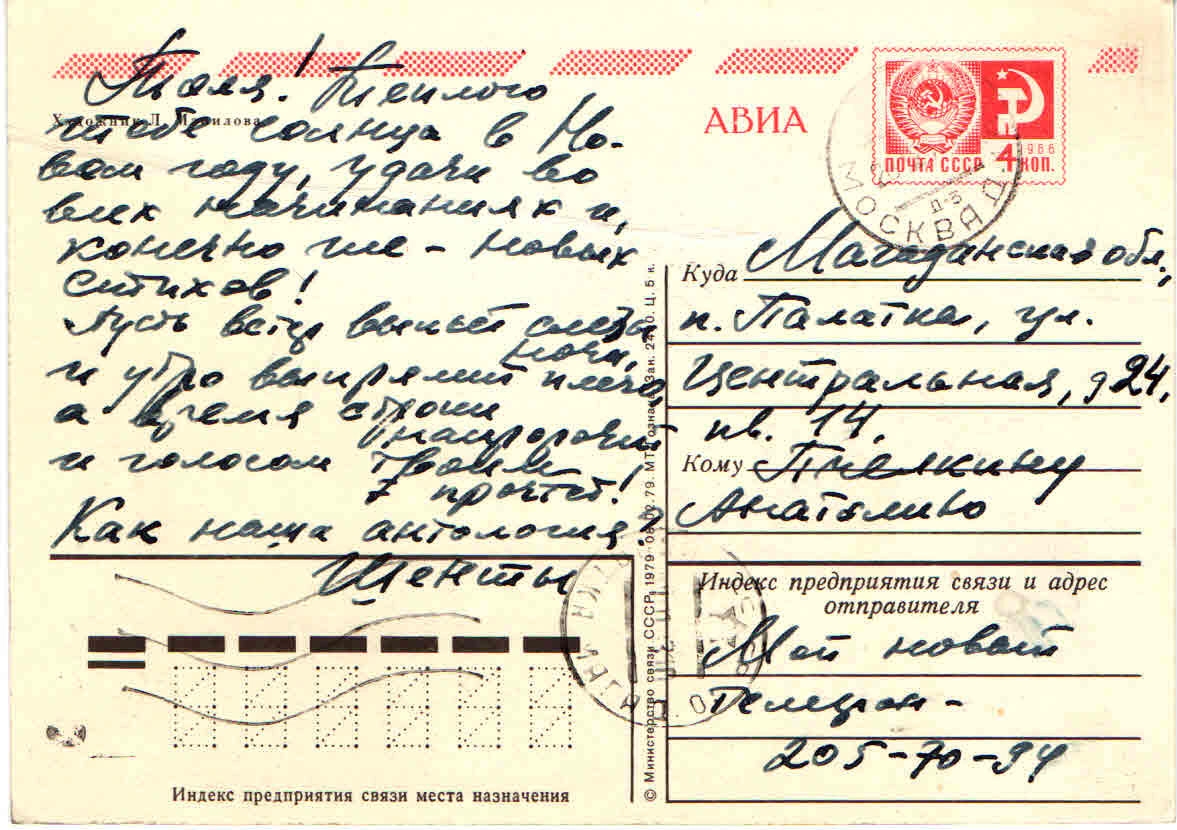 Толя! Теплого
Художник Л. Манилова
тебе солнца в Но-
вом году, удачи во
всех начинаниях и,
конечно же – новых
стихов!
Пусть ветер выпьет слезы
ночи,
и утро выпрямит плечо,
а время строки
напророчит
и голосом твоим
прочтет!
Как наша антология?
АВИА
ПОЧТА СССР
4 КОП.
1966
МОСКВА
Куда Магаданская обл.,
п. Палатка, ул.
Центральная, д 24,
кв. 14.
Кому Пчелкину
Анатолию
Индекс предприятия связи и адрес
отправителя
Мой новый
телефон –
205-70-94
© Министерство связи СССР, 1979
Индекс предприятия связи места назначения